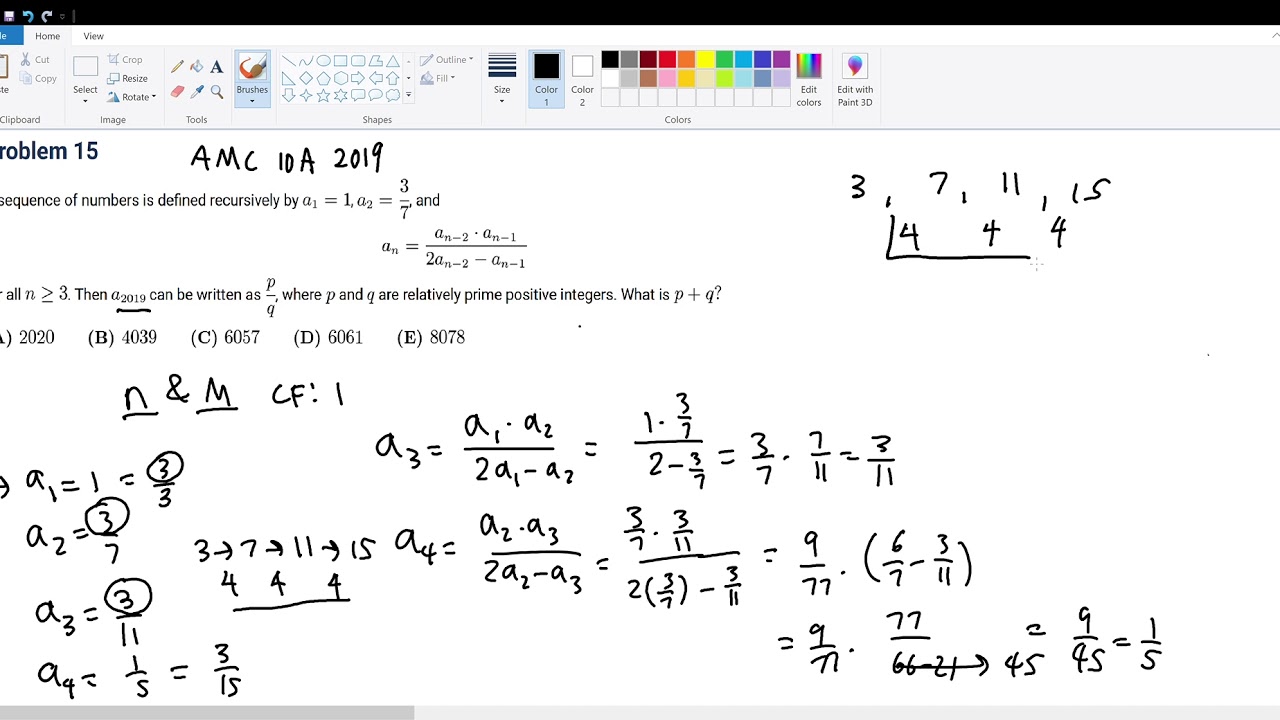 Home View
Cut
Copy
Clipboard
Select
Crop
Resize
Rotate
Image
A
Tools
Brushes
Outline
Fill
Shapes
Size
Color 1
Color 2
Colors
Edit colors
Edit with Paint 3D
roblem 15
AMC 10A 2019
sequence of numbers is defined recursively by a₁ = 1, a₂ = 3/7, and
aₙ = (aₙ₋₂ · aₙ₋₁)/(2aₙ₋₂ − aₙ₋₁)
r all n ≥ 3. Then a₂₀₁₉ can be written as p/q, where p and q are relatively prime positive integers. What is p + q?
A) 2020 (B) 4039 (C) 6057 (D) 6061 (E) 8078
3, 7, 11, 15
4 4 4
n & M CF: 1
→ a₁ = 1 = 3/3
a₂ = 3/7
a₃ = 3/11
a₄ = 1/5 = 3/15
3 → 7 → 11 → 15
4 4 4
a₃ = (a₁ · a₂)/(2a₁ − a₂) = (1 · 3/7)/(2 − 3/7) = 3/7 · 7/11 = 3/11
a₄ = (a₂ · a₃)/(2a₂ − a₃) = (3/7 · 3/11)/(2(3/7) − 3/11) = 9/77 · (6/7 − 3/11)
= 9/77 · 77/(66−21) → 45 = 9/45 = 1/5